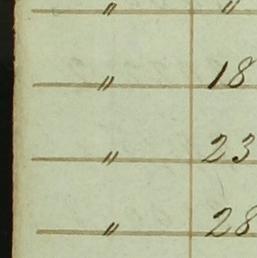 〃 〃
〃 18
〃 23
〃 28